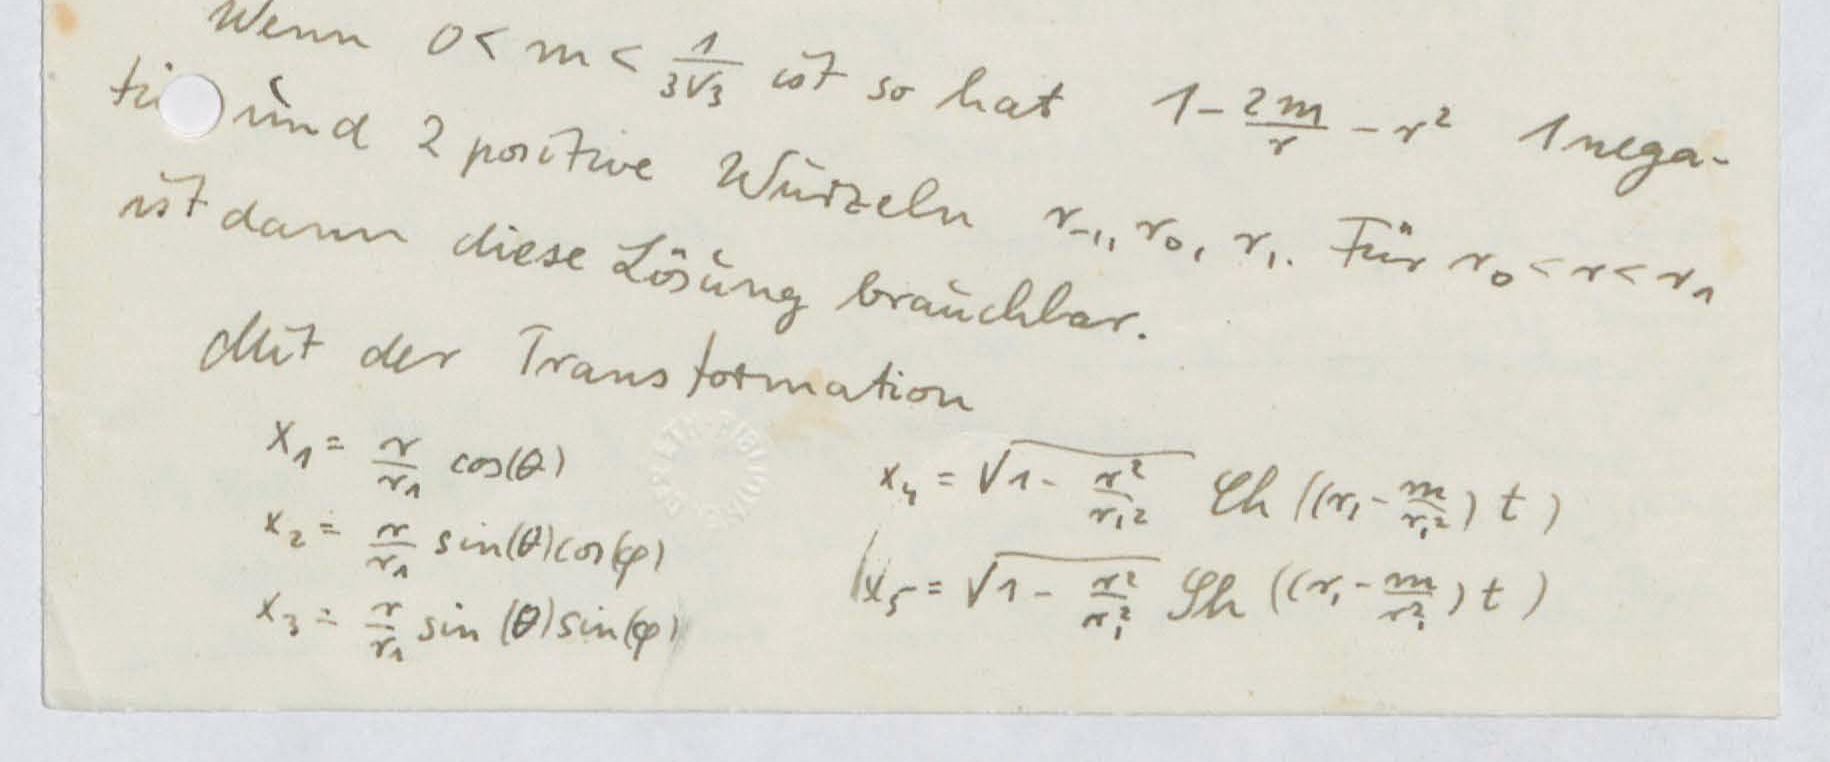 Wenn 0 < m < 1/(3√3) ist so hat 1 - 2m/r - r² 1 nega-
ti und 2 positive Wurzeln r₋₁, r₀, r₁. Für r₀ < r < r₁
ist dann diese Lösung brauchbar.
Mit der Transformation
x₁ = r/r₁ cos(θ) x₄ = √(1 - r²/r₁²) Ch((r₁ - m/r₁²) t)
x₂ = r/r₁ sin(θ)cos(φ)
x₃ = r/r₁ sin(θ)sin(φ) x₅ = √(1 - r²/r₁²) Sh((r₁ - m/r₁²) t)